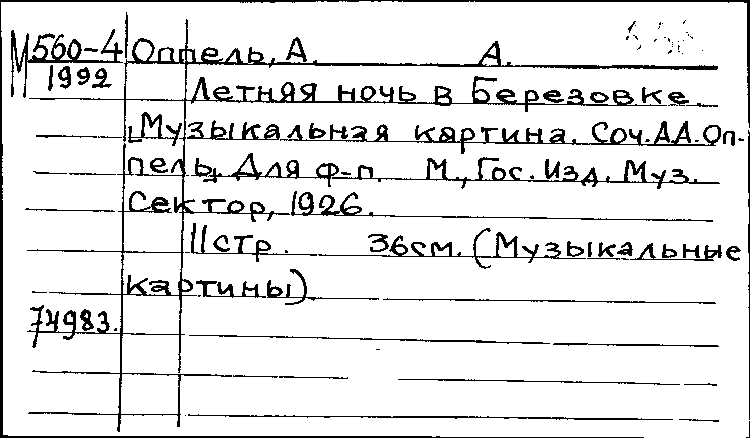 М560-4 Оппель, А. А.
1992
Летняя ночь в Березовке.
[Музыкальная картина. Соч. А.А. Оп-
пель]. Для ф-п. М., Гос. Изд. Муз.
Сектор, 1926.
11 стр. 36 см. (Музыкальные
картины).
74983.